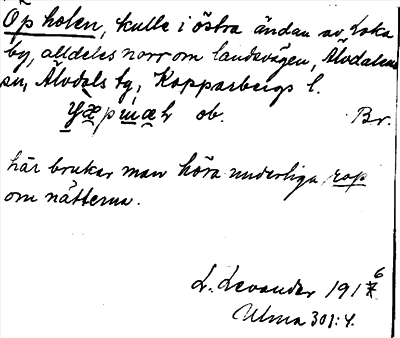 Öpholen, kulle i östra ändan av Loka
by, alldeles norr om landsvägen, Älvdalens
sn, Älvdals tg, Kopparbergs l.
ob. Br.
här brukar man höra underliga rop
om nätterna.
L. Levander 1916
Ulma 301:4.